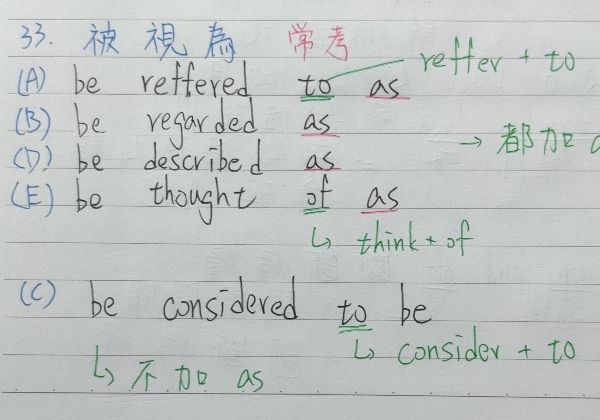 33. 被視為 常考
(A) be reffered to as reffer + to
(B) be regarded as
→ 都加 a
(D) be described as
(E) be thought of as
↳ think + of
(C) be considered to be
↳ consider + to
↳ 不加 as